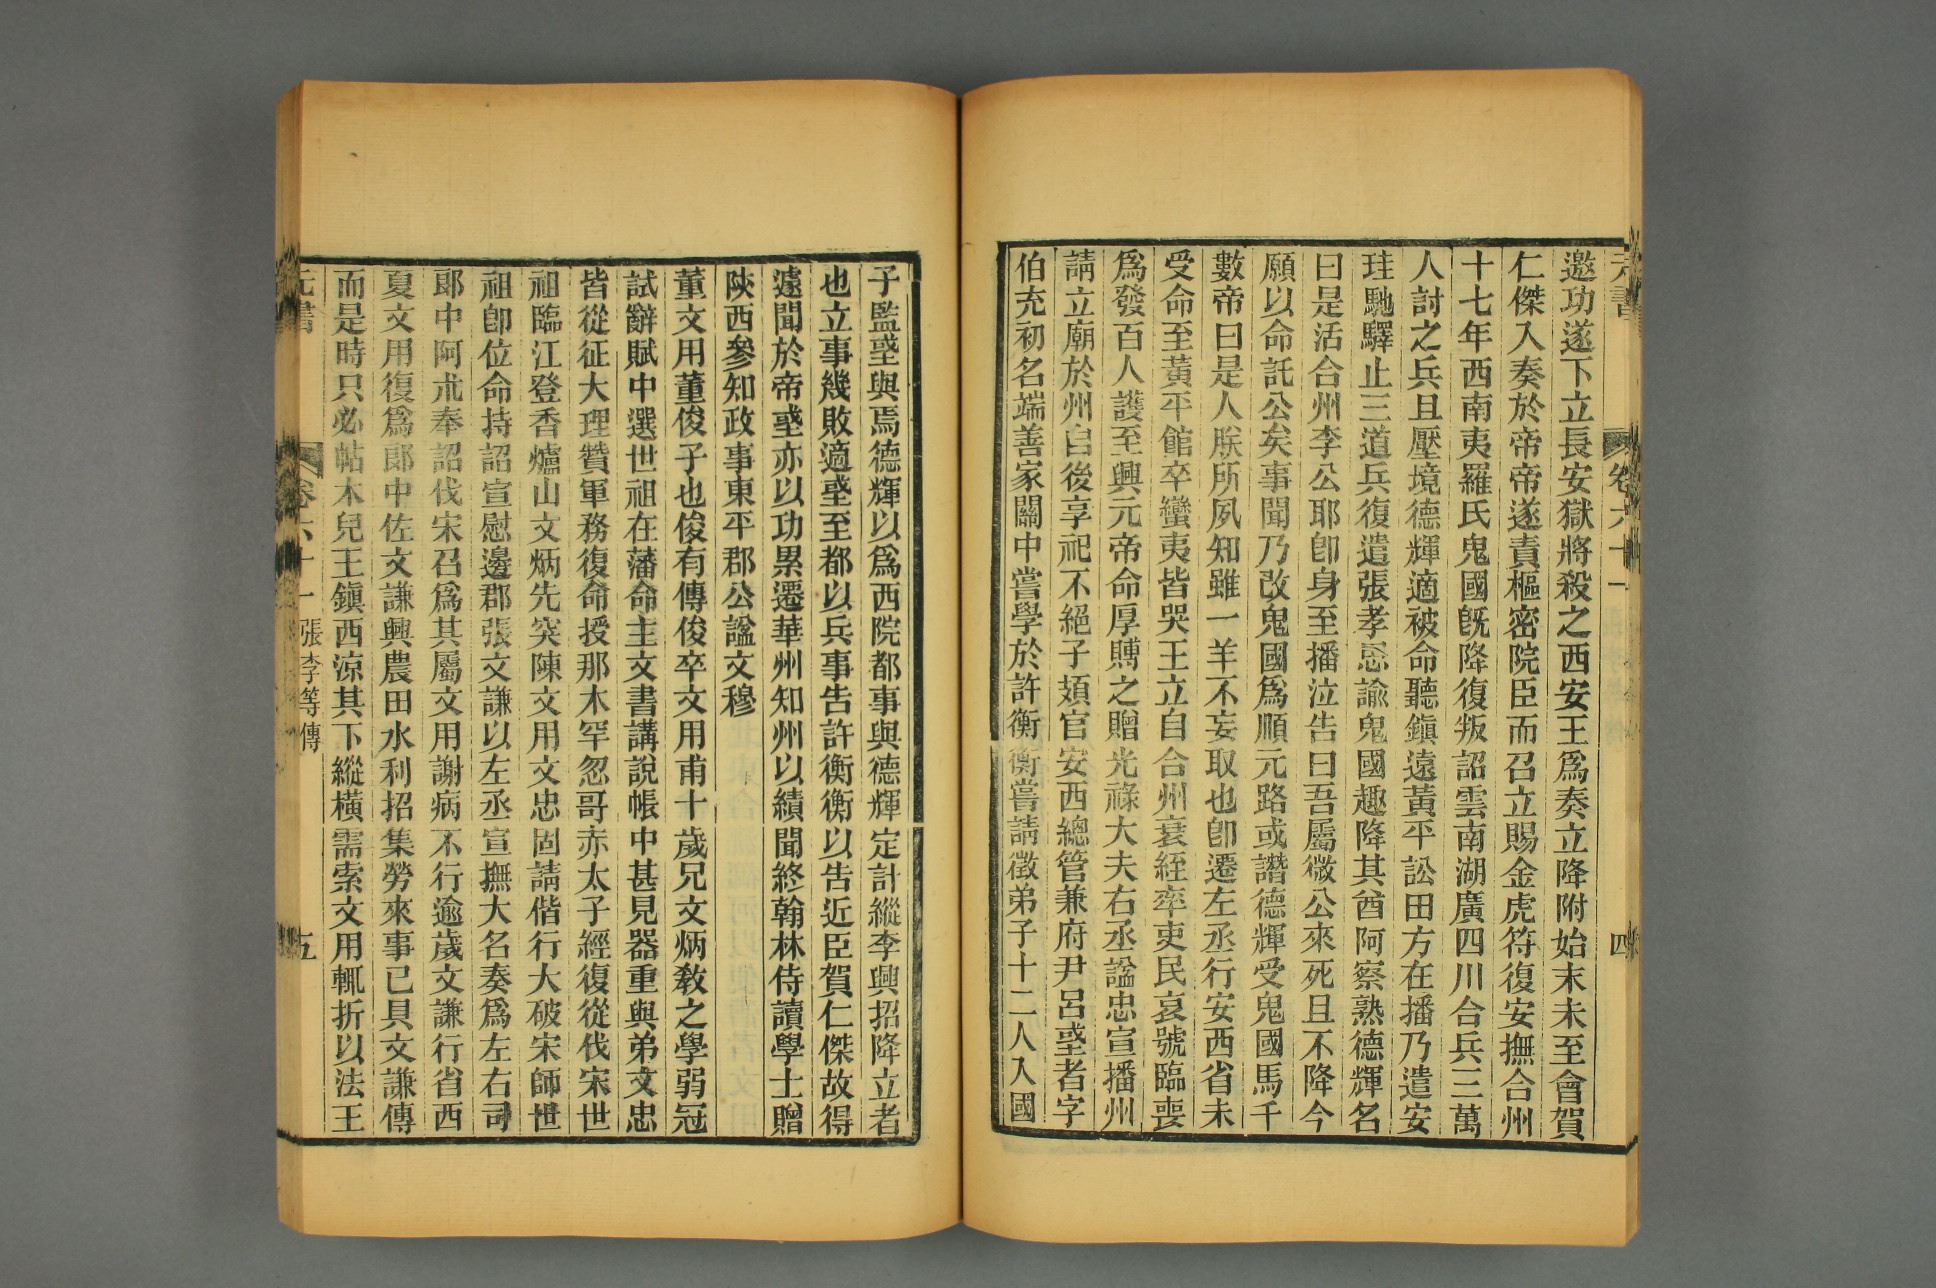 元書 卷六十一 四
邀功遂下立長安獄將殺之西安王爲奏立降附始末未至會賀
仁傑入奏於帝帝遂責樞密院臣而召立賜金虎符復安撫合州
十七年西南夷羅氏鬼國旣降復叛詔雲南湖廣四川合兵三萬
人討之兵且壓境德輝適被命聽鎭遠黃平訟田方在播乃遣安
珪馳驛止三道兵復遣張孝思諭鬼國趣降其酋阿察熟德輝名
曰是活合州李公耶卽身至播泣告曰吾屬微公來死且不降今
願以命託公矣事聞乃改鬼國爲順元路或譖德輝受鬼國馬千
數帝曰是人朕所夙知雖一羊不妄取也卽遷左丞行安西省未
受命至黃平館卒蠻夷皆哭王立自合州衰絰率吏民哀號臨喪
爲發百人護至興元帝命厚賻之贈光祿大夫右丞諡忠宣播州
請立廟於州自後享祀不絕子頍官安西總管兼府尹呂𡌴者字
伯充初名端善家關中嘗學於許衡衡嘗請徵弟子十二人入國
子監𡌴與焉德輝以爲西院都事與德輝定計縱李興招降立者
也立事幾敗適𡌴至都以兵事告許衡衡以告近臣賀仁傑故得
遠聞於帝𡌴亦以功累遷華州知州以績聞終翰林侍讀學士贈
陝西參知政事東平郡公諡文穆
董文用董俊子也俊有傳俊卒文用甫十歲兄文炳敎之學弱冠
試辭賦中選世祖在藩命主文書講說帳中甚見器重與弟文忠
皆從征大理贊軍務復命授那木罕忽哥赤太子經復從伐宋世
祖臨江登香爐山文炳先突陳文用文忠固請偕行大破宋師世
祖卽位命持詔宣慰邊郡張文謙以左丞宣撫大名奏爲左右司
郞中阿朮奉詔伐宋召爲其屬文用謝病不行逾歲文謙行省西
夏文用復爲郞中佐文謙興農田水利招集勞來事已具文謙傳
而是時只必帖木兒王鎭西涼其下縱橫需索文用輒折以法王
元書 卷六十一 張李等傳 五